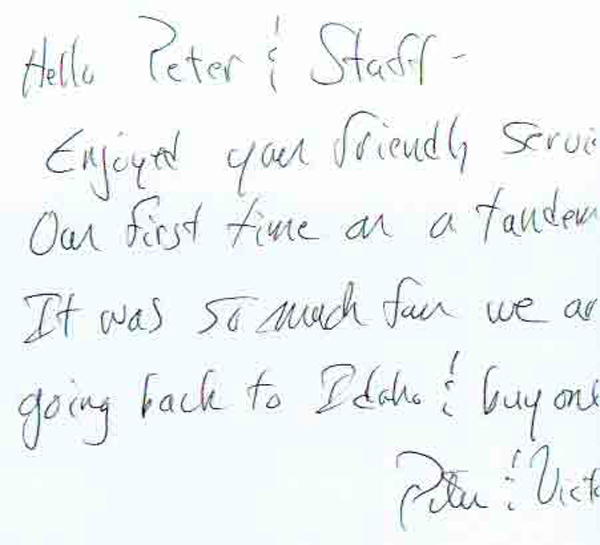 Hello Peter & Staff -
Enjoyed your friendly Servi
Our first time on a tandem
It was so much fun we ar
going back to Idaho & buy one
Peter & Victo